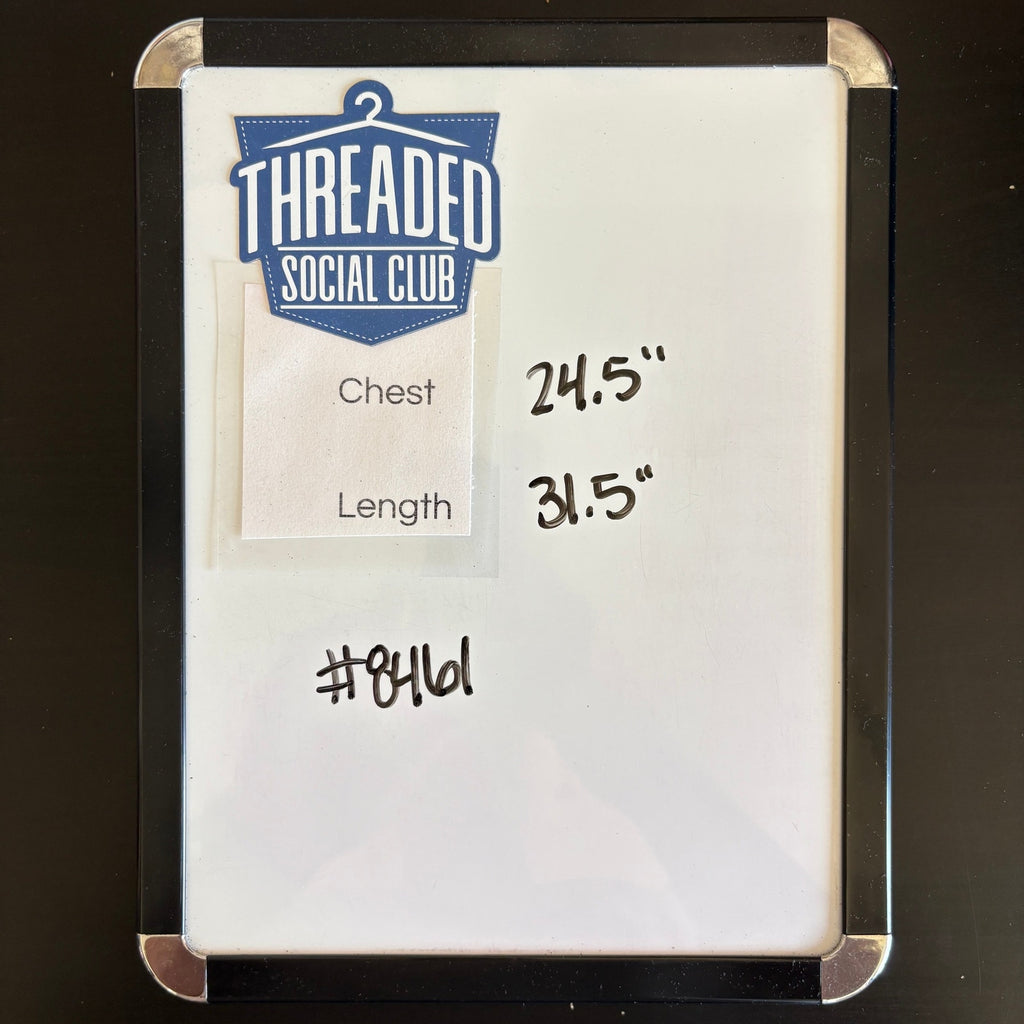 THREADED
SOCIAL CLUB
Chest 24.5"
Length 31.5"
#8461